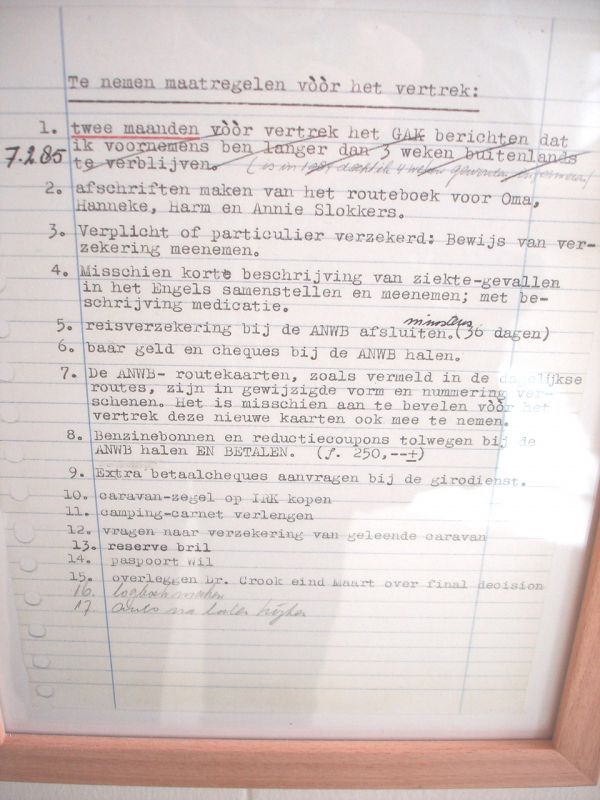 Te nemen maatregelen vòòr het vertrek:
1. twee maanden vòòr vertrek het GAK berichten dat
7.2.85 ik voornemens ben langer dan 3 weken buitenlands
te verblijven. (is in 1984
2. afschriften maken van het routeboek voor Oma,
Hanneke, Harm en Annie Slokkers.
3. Verplicht of particulier verzekerd: Bewijs van ver-
zekering meenemen.
4. Misschien korte beschrijving van ziekte-gevallen
in het Engels samenstellen en meenemen; met be-
schrijving medicatie.
minstens
5. reisverzekering bij de ANWB afsluiten.(36 dagen)
6. baar geld en cheques bij de ANWB halen.
7. De ANWB- routekaarten, zoals vermeld in de dagelijkse
routes, zijn in gewijzigde vorm en nummering ver-
schenen. Het is misschien aan te bevelen vòòr het
vertrek deze nieuwe kaarten ook mee te nemen.
8. Benzinebonnen en reductiecoupons tolwegen bij de
ANWB halen EN BETALEN. (f. 250,--±)
9. Extra betaalcheques aanvragen bij de girodienst.
10. caravan-zegel op IRK kopen
11. camping-carnet verlengen
12. vragen naar verzekering van geleende caravan
13. reserve bril
14. paspoort Wil
15. overleggen Dr. Crook eind Maart over final decision
16. logboek maken
17. auto na laten kijken